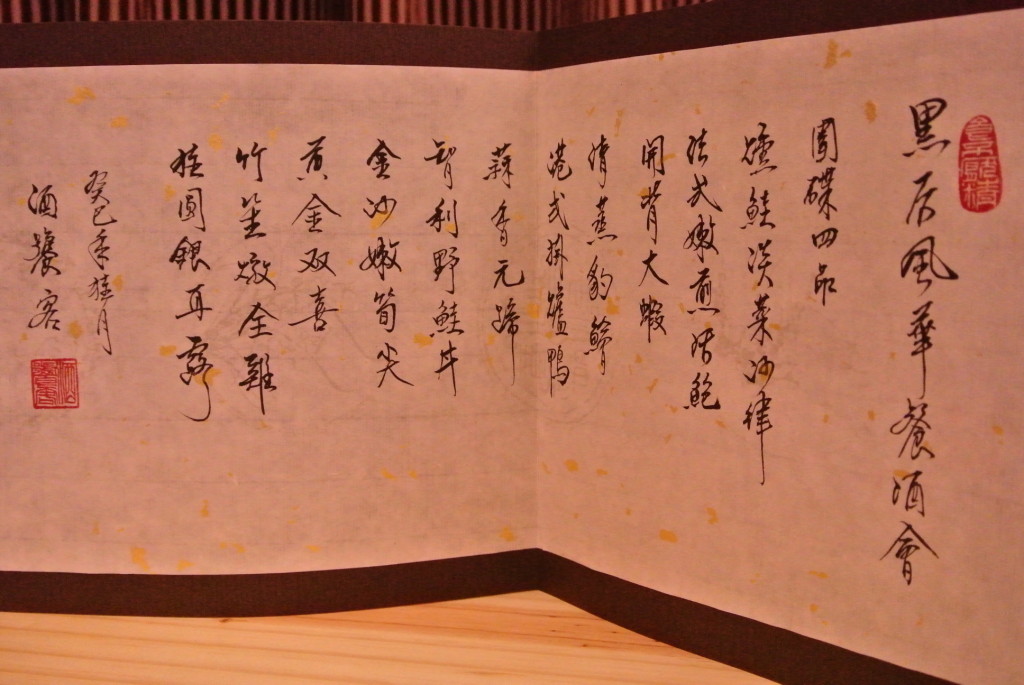 黑居風華餐酒會
圍碟四品
燻鮭淡菜沙律
法式嫩煎活鮑
開背大蝦
清蒸豹鰽
港式掛爐鴨
蒜香元蹄
智利野鮭丼
金沙嫩筍尖
黃金双喜
竹笙燉全雞
桂圓銀耳露
癸巳年桂月
酒饕客